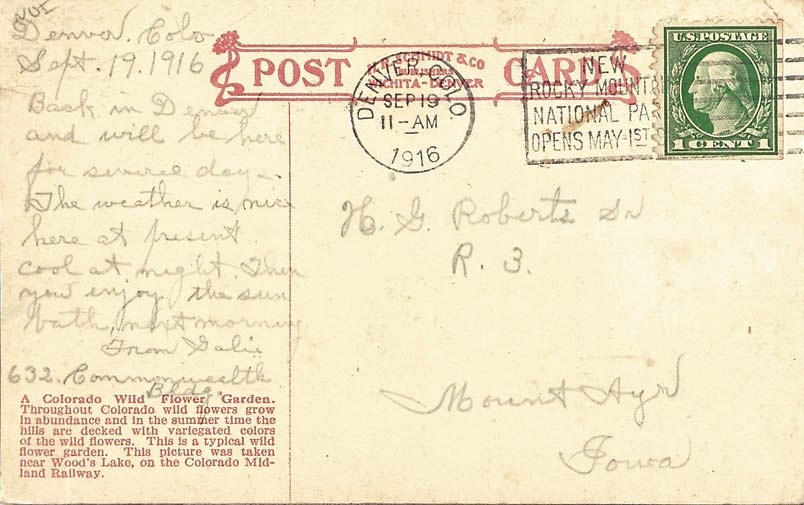 Denver. Colo
Sept. 19. 1916
Back in Denver
and will be here
for several days.
The weather is nice
here at present
cool at night. Then
you enjoy the sun
bath, next morning
From
632. Commonwealth
Bldg.
A Colorado Wild Flower Garden.
Throughout Colorado wild flowers grow
in abundance and in the summer time the
hills are decked with variegated colors
of the wild flowers. This is a typical wild
flower garden. This picture was taken
near Wood's Lake, on the Colorado Mid-
land Railway.
POST CARD
SCHMIDT & CO
PUBLISHERS
WICHITA-DENVER
DENVER, COLO.
SEP 19
11-AM
1916
NEW
ROCKY MOUNTAI
NATIONAL PA
OPENS MAY-1ST
U.S. POSTAGE
1 CENT 1
H. G. Roberts Sr
R. 3.
Mount Ayr
Iowa